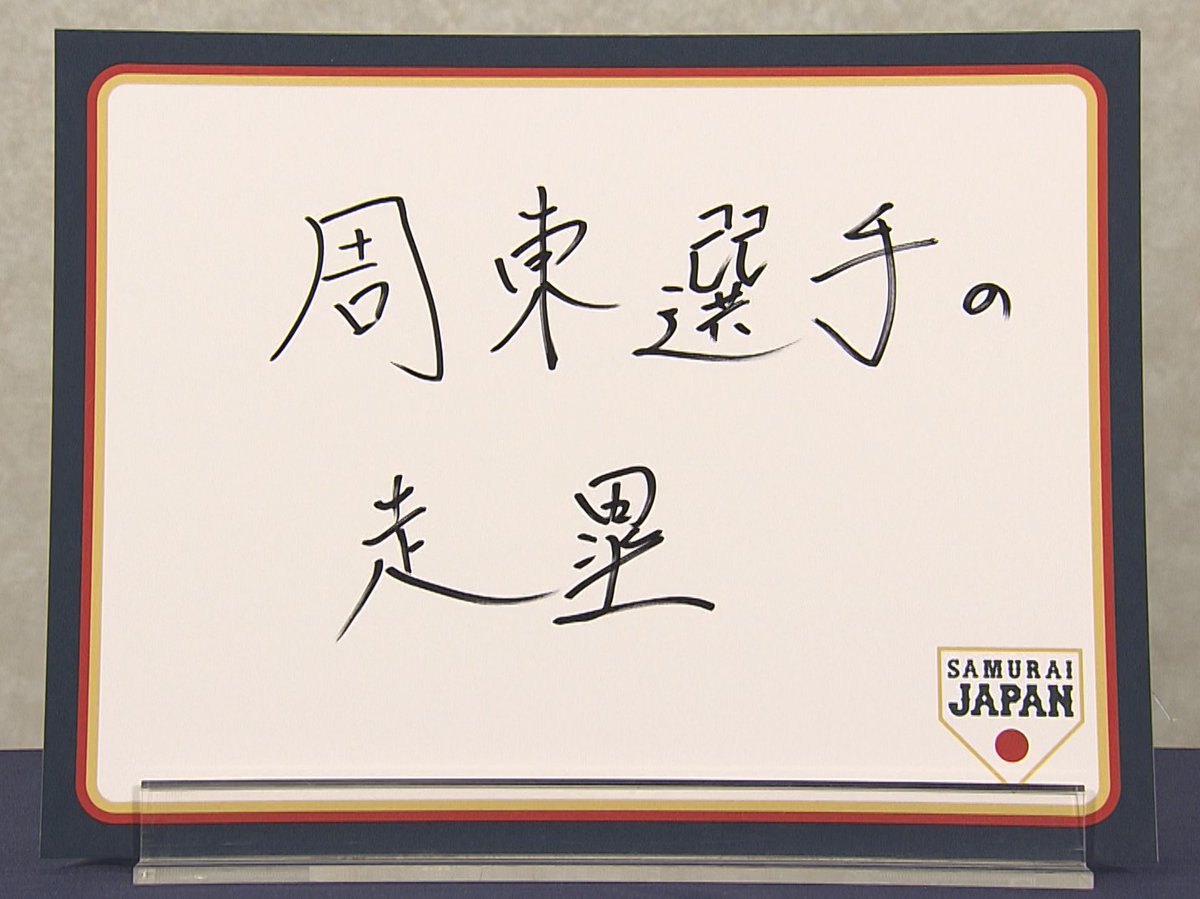 周東選手の
走塁
SAMURAI
JAPAN